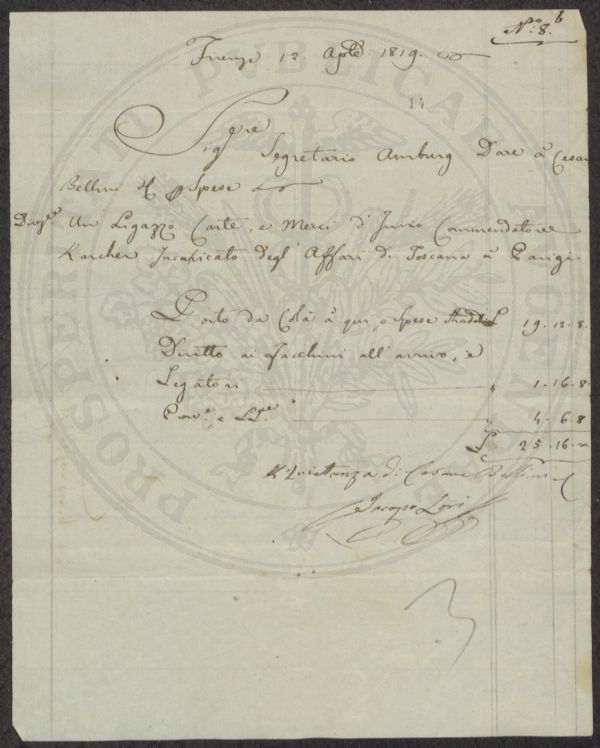 N.ro 8. b
Firenze 12. Aple. 1819.
14
Sig.re Segretario Amburg Dare à Cesare
Bellini Spese
Un Ligazzo Carte, e Merci d'Invio Commendatore
Karcher Incaricato degl'Affari di Toscana à Parigi
Porto da Colà à qui, e Spese Stradali £ 19.12.8.
Diretto ai Facchini all'arrivo, e
Legatori " 1.16.8
Prov.e e " 4.6.8
£ 25.16.~
Quietanza di Cesare Bellini
Jacopo Lori
PROSPERITATI PUBLICAE AUGENDAE